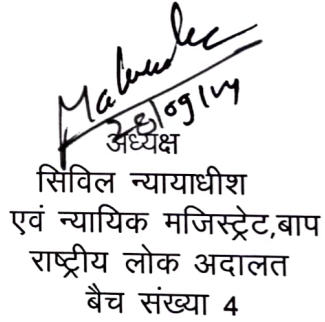 28/09/24
अध्यक्ष
सिविल न्यायाधीश
एवं न्यायिक मजिस्ट्रेट,बाप
राष्ट्रीय लोक अदालत
बैच संख्या 4